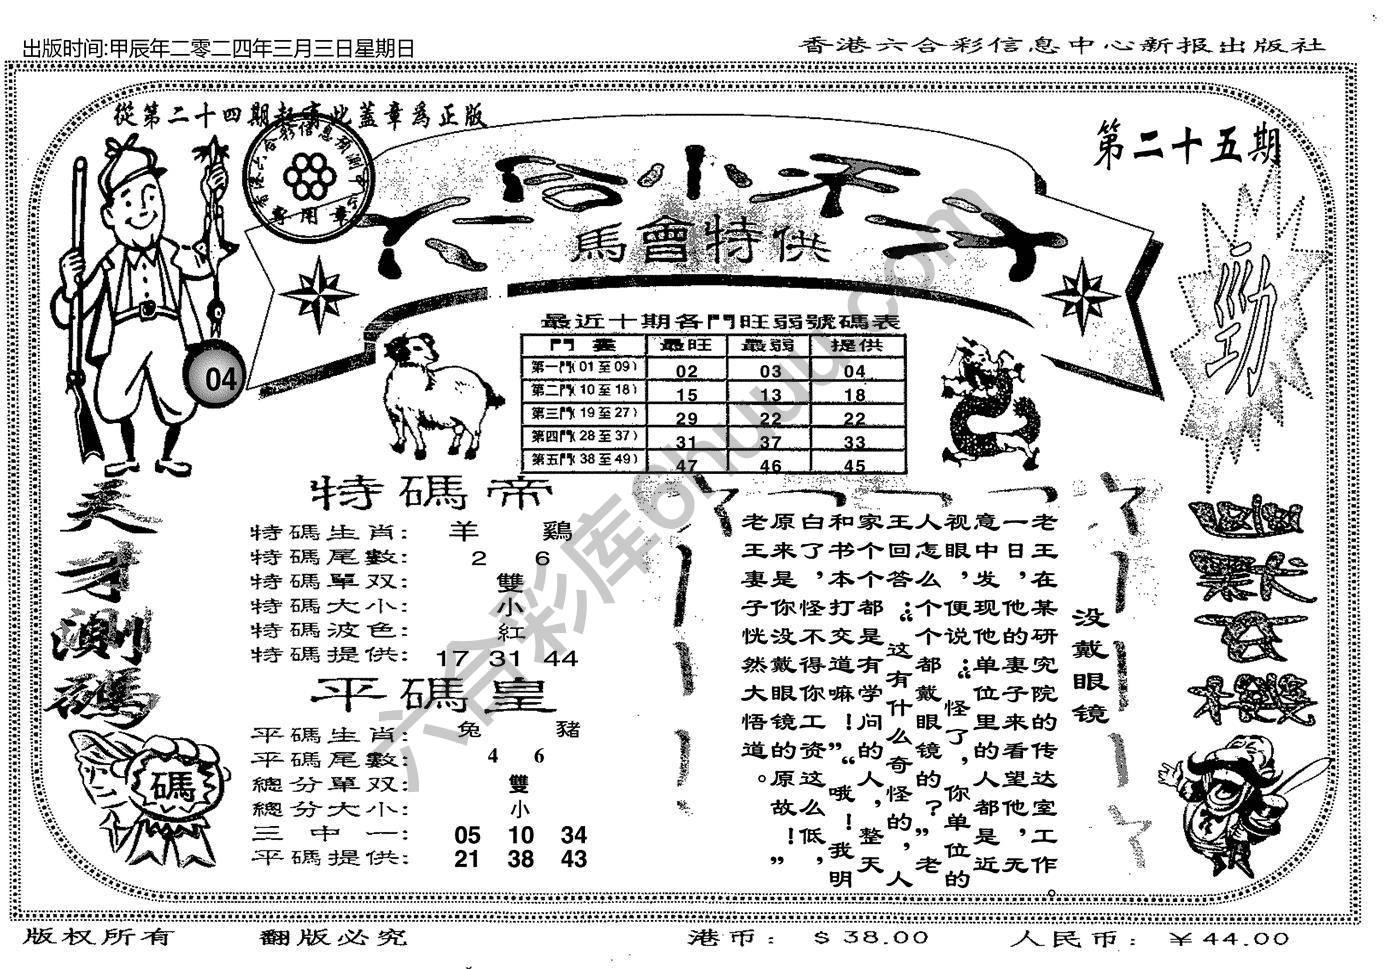 出版时间:甲辰年二零二四年三月三日星期日
香港六合彩信息中心新报出版社
從第二十四期起需此蓋章為正版
专用章
第二十五期
六合小天才
馬會特供
勁
04
最近十期各門旺弱號碼表
門 最旺 最弱 提供
第一門(01至09) 02 03 04
第二門(10至18) 15 13 18
第三門(19至27) 29 22 22
第四門(28至37) 31 37 33
第五門(38至49) 47 46 45
天才測碼
特碼帝
特碼生肖: 羊 鷄
特碼尾數: 2 6
特碼單双: 雙
特碼大小: 小
特碼波色: 紅
特碼提供: 17 31 44
平碼皇
平碼生肖: 兔 豬
平碼尾數: 4 6
總分單双: 雙
總分大小: 小
三中一: 05 10 34
平碼提供: 21 38 43
碼
没戴眼镜
老王在某研究院的传达室工作。
一日，他的妻子来看望他，无
意中发现他单位里的人都是近
视眼，便说：“怪了，你单位的
人怎么个个都戴眼镜的？”老
王回答：“这有什么奇怪的，人
家个个都是有学问的人，整天
和书本打交道嘛！”“哦！我明
白了，怪不得你工资这么低，
原来是你没戴眼镜的原故！”
老王妻子恍然大悟道。
六合彩库6huuu.com
版权所有
翻版必究
港币: $38.00
人民币: ￥44.00